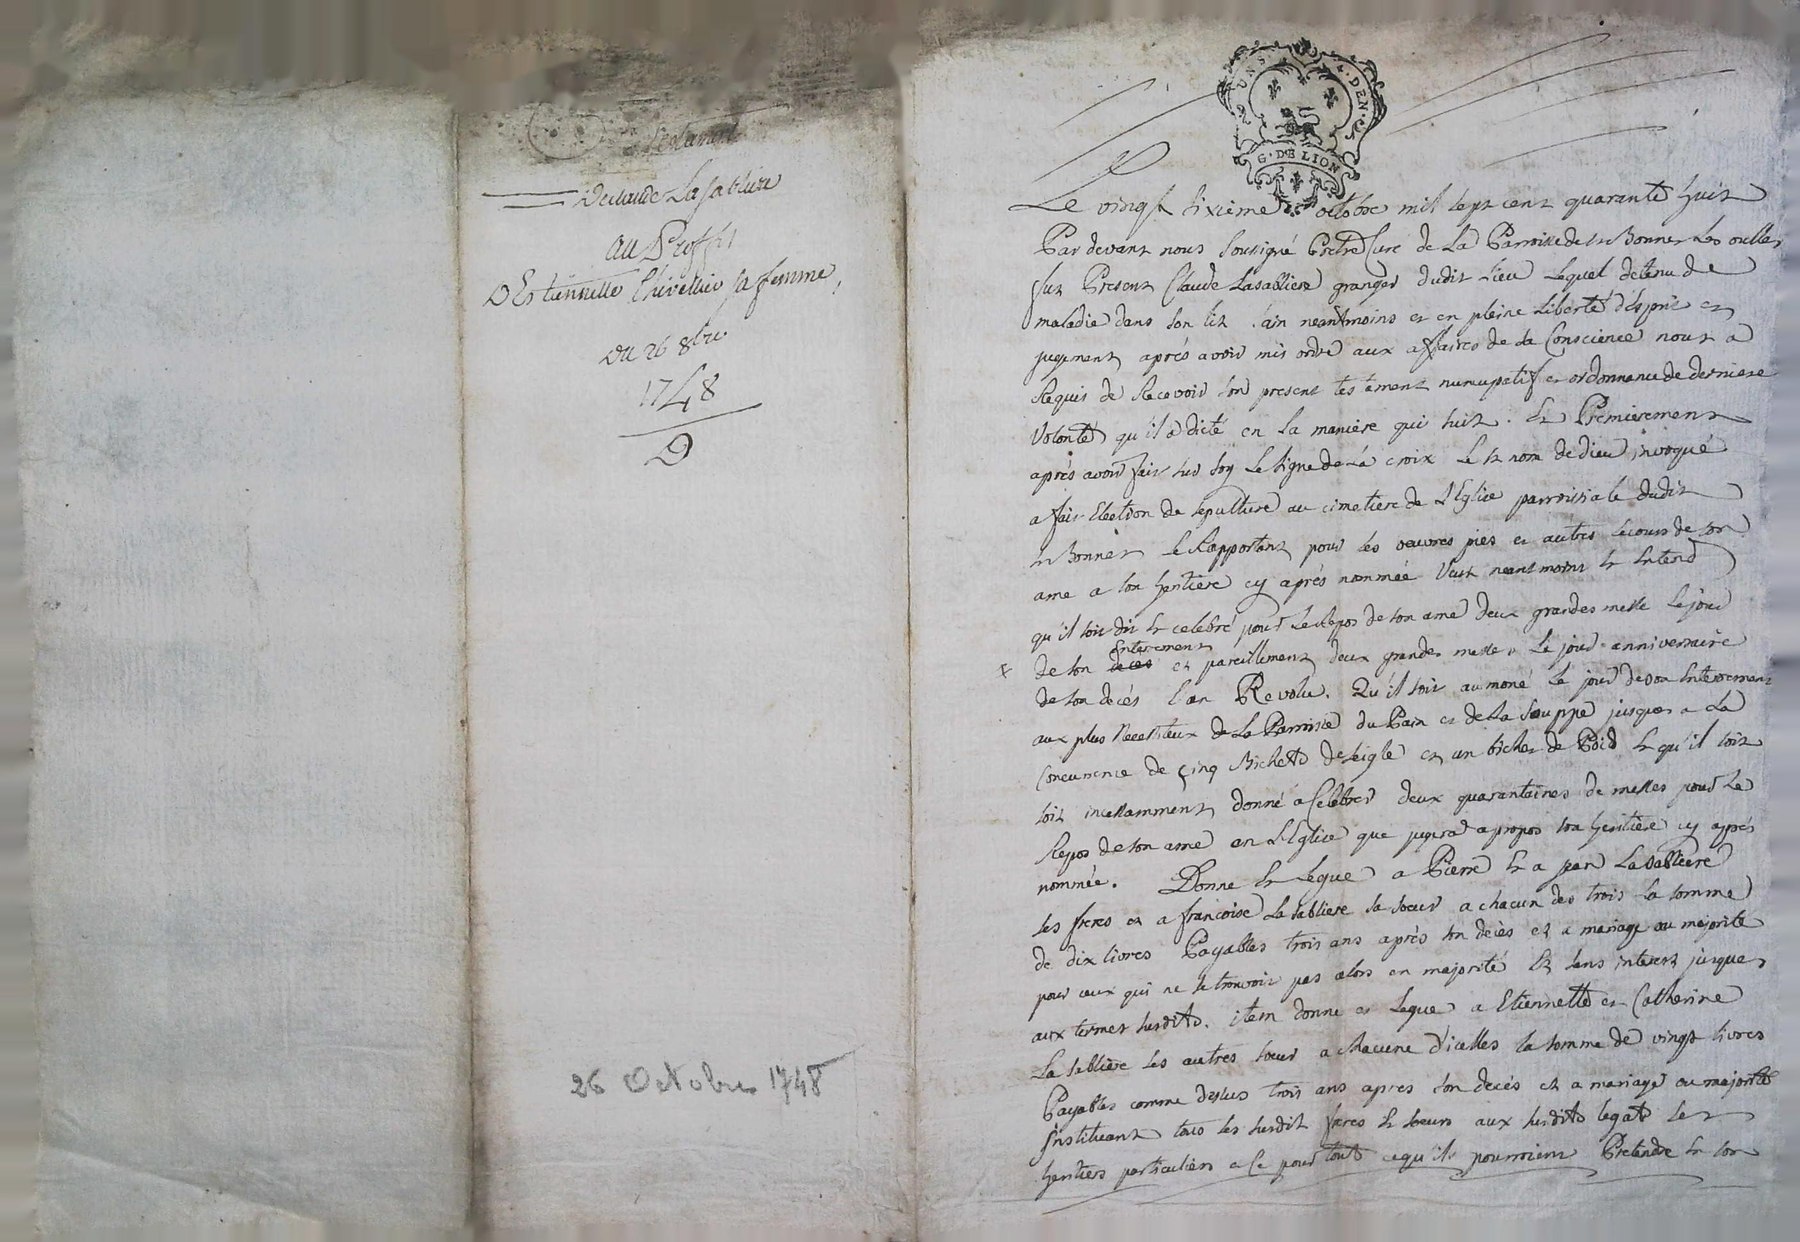 Testament
De Claude La Sabliere
au Proffit
D'Estiennette Chevellier sa femme,
Du 26 8bre
1748
26 Octobre 1748
DEN.
G. DE LION
Le vingt sixieme octobre mil sept cent quarante huit
Par devant nous Sousigné Pretre Curé de La Parroisse de St Bonnet Les oulles
fut Present Claude Lasabliere granger dudit Lieu Lequel detenu de
maladie dans son lit sain neantmoins et en pleine Liberté d'ésprit et
jugement aprés avoir mis ordre aux affaires de sa Conscience nous a
Requis de Recevoir son present testament nuncupatif et ordonnance de derniere
Volonté qu'il a dicté en la maniere qui suit. Et Premierement
aprés avoir fait sur soy Le signe de la croix Le St nom de dieu invoqué
a fait Election de sepulture au cimetiere de L'Eglise parroissiale dudit
St Bonnet se Rapportant pour les oeuvres pies et autres secours de son
ame a son heritiere cy aprés nommée Veut neantmoins et Entend
qu'il soit dit et celebré pour Le Repos de son ame deux grandes messe Le jour
de son deces Enterement et pareillement deux grandes messes Le jour anniversaire
de son decés l'an Revolu. Qu'il soit aumoné Le jour de son Enterrement
aux plus Necessiteux de La Parroisse du Pain et de La Souppe jusques a La
Concurrence de çinq Bichets de seigle et un bichet de Poid et qu'il soit
soit incessamment donné a Celebrer deux quarantaines de messes pour Le
Repos de son ame en L'Eglise que jugera apropos son heritiere cy aprés
nommée. Donne et Legue a Pierre et a jean Lasabliere
ses freres et a francoise Lasabliere sa soeur a chacun des trois la somme
de dix livres Payables trois ans aprés son decés et a mariage ou majorité
pour ceux qui ne se trouvoit pas alors en majorité Et sans interest jusques
aux termes susdits. item donne et Legue a Etiennette et Catherine
La Sabliere ses autres soeur a chacune d'icelles la somme de vingt livres
Payables comme dessus trois ans apres son decés et a mariage ou majorité
Instituant tous les susdit freres et soeurs aux susdits legats ses
heritiers particuliers et Ce pour tout ce qu'ils pourroient Pretendre en son